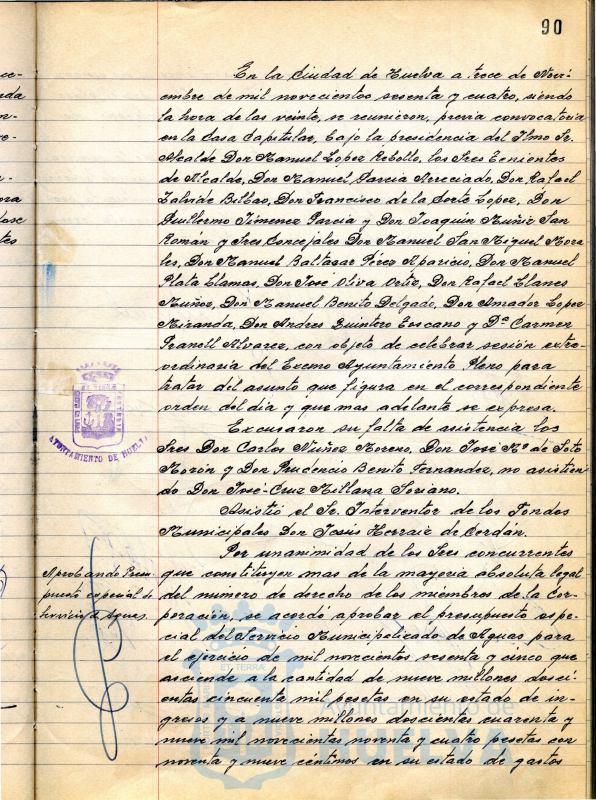 90
En la Ciudad de Huelva a trece de Novi-
embre de mil novecientos sesenta y cuatro, siendo
la hora de las veinte, se reunieron, previa convocatoria
en la Casa Capitular, bajo la presidencia del Ilmo Sr.
Alcalde Don Manuel López Rebollo, los Sres Tenientes
de Alcalde, Don Manuel Garcia Hereciado, Don Rafael
Zalvide Bilbao, Don Francisco de la Corte Lopez, Don
Guillermo Jimenez Garcia y Don Joaquin Muñiz San
Román y Sres Concejales Don Manuel San Miguel Mora
les, Don Manuel Baltasar Pérez Aparicio, Don Manuel
Plata Llamas, Don José Oliva Ortiz, Don Rafael Llanes
Muñoz, Don Manuel Benito Delgado, Don Amador Lopez
Miranda, Don Andres Quintero Toscano y Dª Carmen
Alvarez, con objeto de celebrar sesión extra-
ordinaria del Excmo Ayuntamiento Pleno para
tratar del asunto que figura en el correspondiente
orden del dia y que mas adelante se expresa.
Excusaron su falta de asistencia los
Sres Don Carlos Nuñez Moreno, Don José Mª de Soto
Morón y Don Prudencio Benito Fernandez, no asistien
do Don José-Cruz Millana Soriano.
Asistió el Sr. Interventor de los Fondos
Municipales Don Jesús Herraiz de Cerdán.
Por unanimidad de los Sres concurrentes
que constituyen mas de la mayoria absoluta legal
del numero de derecho de los miembros de la Cor-
poración, se acordó aprobar el presupuesto espe-
cial del Servicio Municipalizado de Aguas para
el ejercicio de mil novecientos sesenta y cinco que
asciende a la cantidad de nueve millones dosci-
entas cincuenta mil pesetas en su estado de in-
gresos y a nueve millones doscientas cuarenta y
nueve mil novecientas noventa y cuatro pesetas con
noventa y nueve centimos en su estado de gastos
Aprobando Presu
puesto especial de
Servicio de Aguas.
AYUNTAMIENTO DE HUELVA
Ayuntamiento de
HUELVA